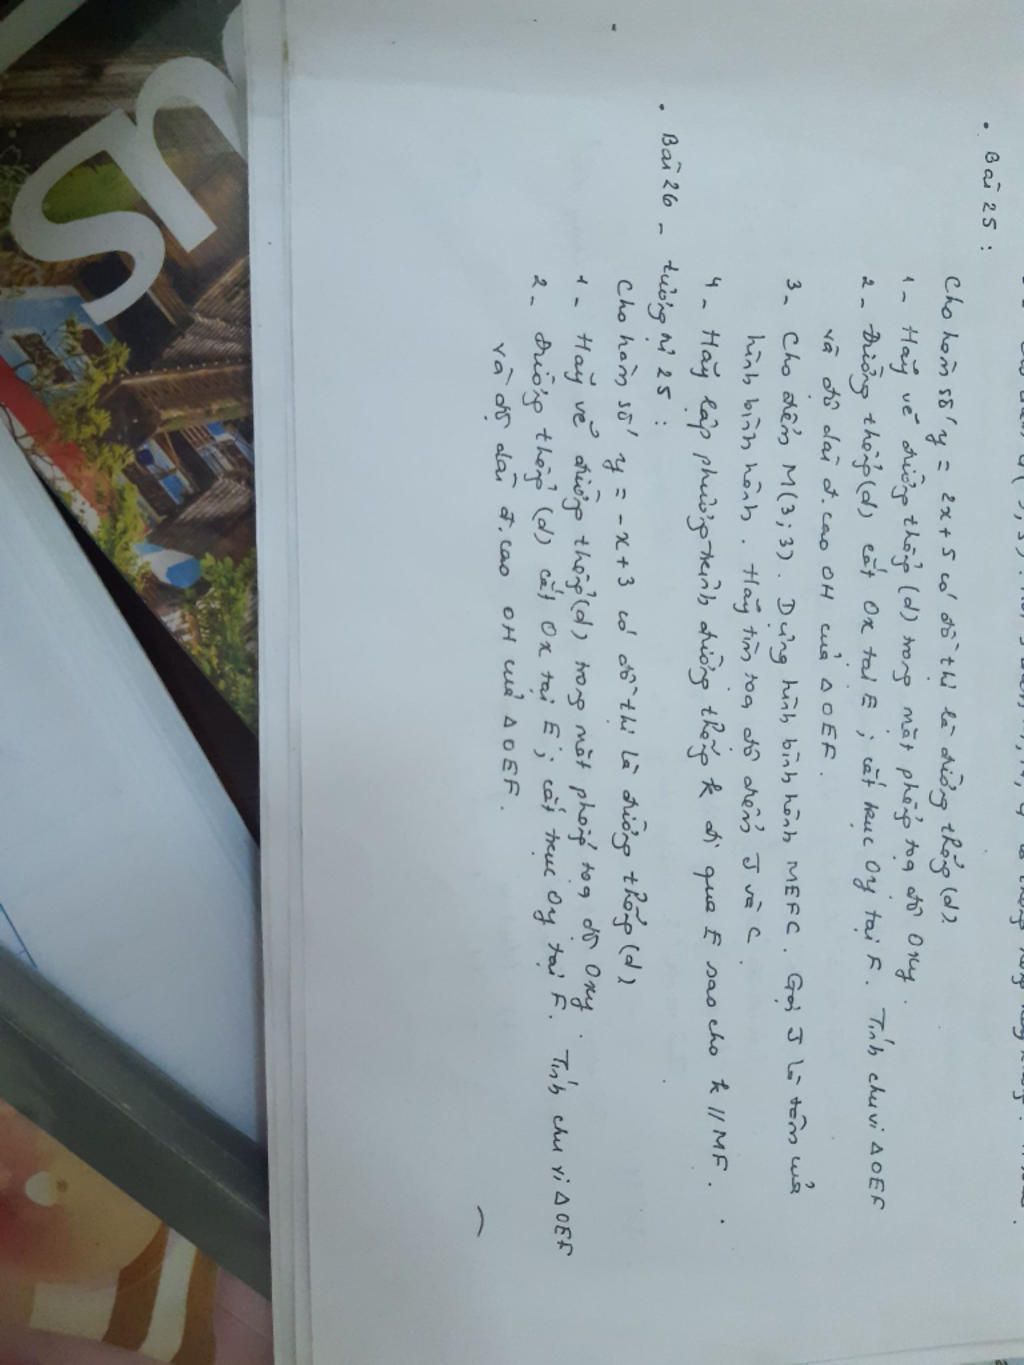 • Bài 25 :
Cho hàm số y = 2x + 5 có đồ thị là đường thẳng (d).
1 - Hãy vẽ đường thẳng (d) trong mặt phẳng toạ độ Oxy.
2 - Đường thẳng (d) cắt Ox tại E ; cắt trục Oy tại F. Tính chu vi △OEF
và độ dài đ.cao OH của △OEF.
3 - Cho điểm M(3 ; 3). Dựng hình bình hành MEFC. Gọi J là tâm của
hình bình hành. Hãy tìm toạ độ điểm J và C.
4 - Hãy lập phương trình đường thẳng k đi qua E sao cho k // MF.
• Bài 26 - tương tự 25 :
Cho hàm số y = -x + 3 có đồ thị là đường thẳng (d)
1 - Hãy vẽ đường thẳng (d) trong mặt phẳng toạ độ Oxy.
2 - Đường thẳng (d) cắt Ox tại E ; cắt trục Oy tại F. Tính chu vi △OEF
và độ dài đ.cao OH của △OEF.